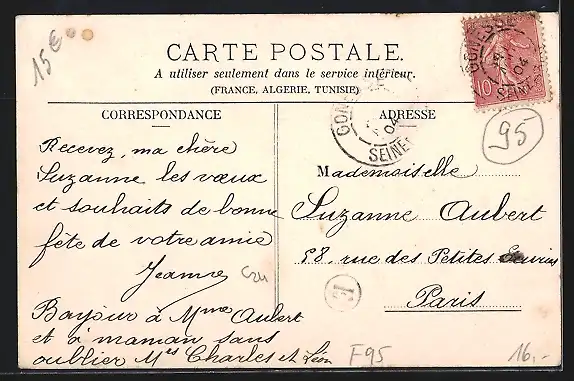 15€
CARTE POSTALE.
A utiliser seulement dans le service intérieur.
(FRANCE, ALGERIE, TUNISIE)
CORRESPONDANCE
Recevez, ma chère
Suzanne les vœux
et souhaits de bonne
fête de votre amie
Jeanne
Bonjour à Mme Aubert
et à maman sans
oublier Mrs Charles et Léon
ADRESSE
Mademoiselle
Suzanne Aubert
58, rue des Petites Ecuries
Paris
10
04
04
SEINE-
95
E
F95
16,-